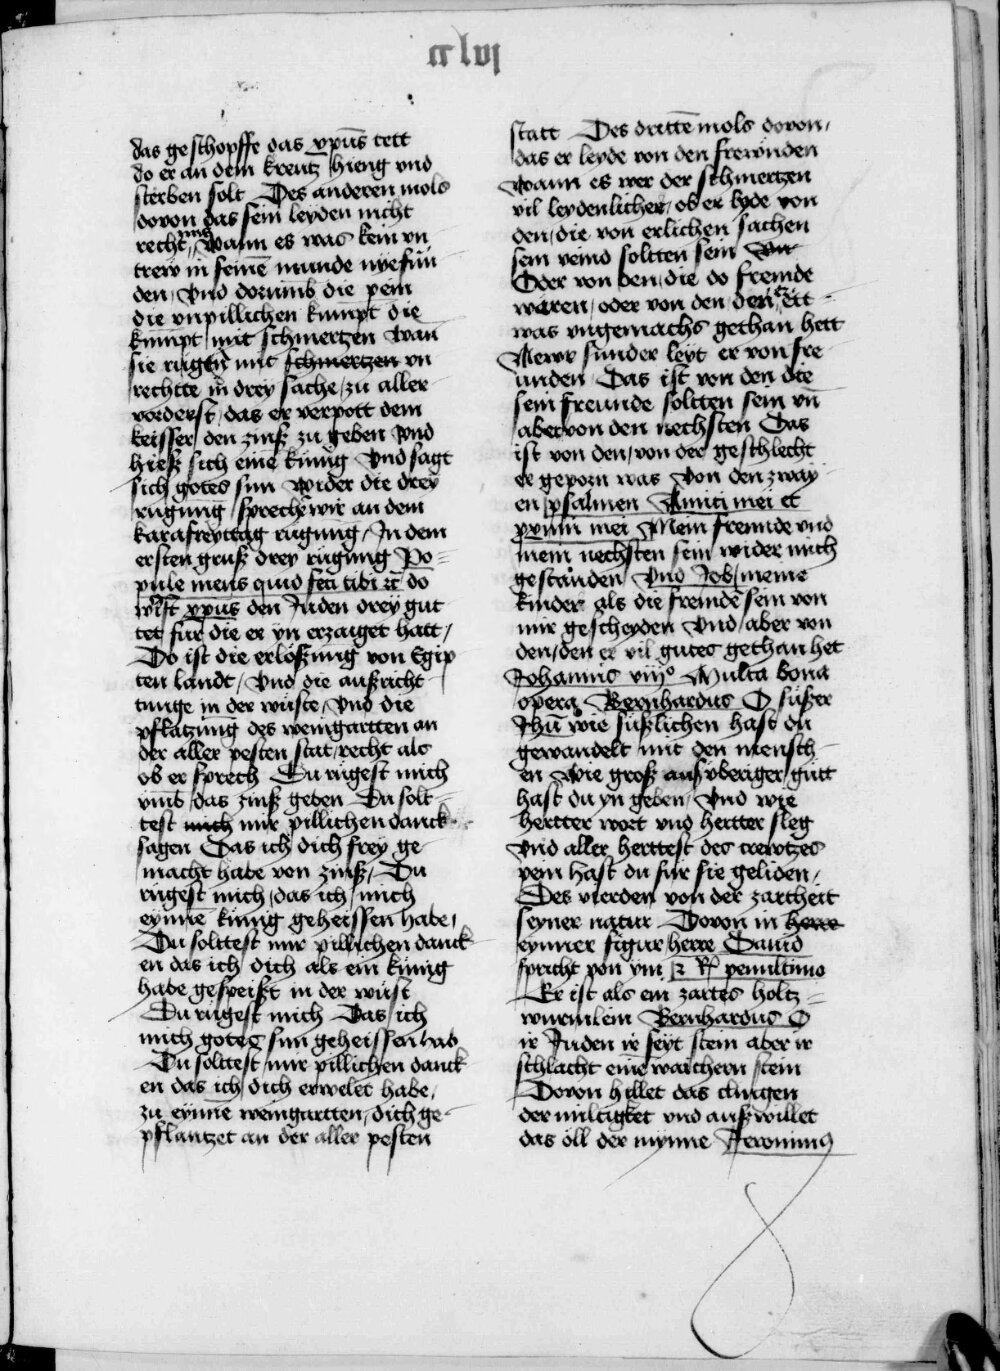 cclvj
das geschopffe das xpūs tett
do er an dem kreutz hieng vnd
sterben solt Des anderen mols
dovon das sein leyden nicht
recht was wann es was kein vn
trew in seinē munde nye fun
den / Vnd dorumb die pein
die vnpillichen kumpt die
kumpt mit schmertzen wan
sie rugen mit schmertzen vn
rechtte in drey sache / zu aller
vorderst / das er verpott dem
keisser den zinß zu geben Vnd
hieß sich eine kūnig Vnd sagt
sich gotes sun Wider die drey
rugung sprech wir an dem
karafreyttag rugung / In dem
ersten gruß drey rugung Po=
pule meus quid feci tibi ꝛc do
weist xpus den Juden drey gut
tet fur die er yn erzaiget hatt /
Do ist die erloßung von Egip
ten landt / Vnd die außricht
tunge in der wüste / Vnd die
pflatzung des weingartten an
der aller pesten stat / recht als
ob er sprech Du rugest mich
vmb das zinß geben Du solt=
test mich mir pillichen danck
sagen Das ich dich frey ge
macht habe von zinß / Du
rugest mich / das ich mich
eynnē kunig geheissen habe /
Du solttest mir pillichen danck
en das ich dich als ein kūnig
habe gespeißt in der wüst
Du rugest mich Das ich
mich gotes sun geheissen hab
Du solttest mir pillichen danck
en das ich dich erwelet habe /
zu eynnē weingartten / dich ge=
pflantzet an der aller pesten
statt Des drittē mols dovon /
das er leyde von den frewnden
Wann es wer der schmertzen
vil leydenlicher / ob er lyde von
den / die von erlichen sachen
sein veind soltten sein Vn
Oder von den / die do fremde
wåren / oder von den / den er ett=
was vngemachs gethan hett
Mewr sunder leyt er von fre
unden Das ist von den die
sein freunde soltten sein vn̄
aber von den nechsten Das
ist von den / von der geschlecht
er geporn was Von den zway
en psalmen Amici mei et
proximi mei Mein fremde vnd
mein nechsten sein wider mich
gestanden Vnd Job / meine
kinder als die fremdē sein von
mir gescheyden Vnd / aber von
den / den er vil gutes gethan het
Johannis viijº Multa bona
opera Bernhardus O süßer
Jhū wie süßlichen hast du
gewandelt mit den mensch=
en Wie groß auß vberiger gütt
hast du yn geben / Vnd wie
hertter wort vnd hertter sleg
Vnd aller herttest des crewtzes
pein hast du für sie geliden /
Des vierden von der zartheit
seyner natur Dovon in herre
eynner figur herre Dauid
spricht von ym ꝛ Rº penultimo
Er ist als ein zartes holtz=
wurmlein Bernhardus O
ir Juden ir seyt stein aber ir
schlacht einē waichern stein
Dovon hillet das clingen
der miltigket vnd auß willet
das öll der mynne Jeronimus